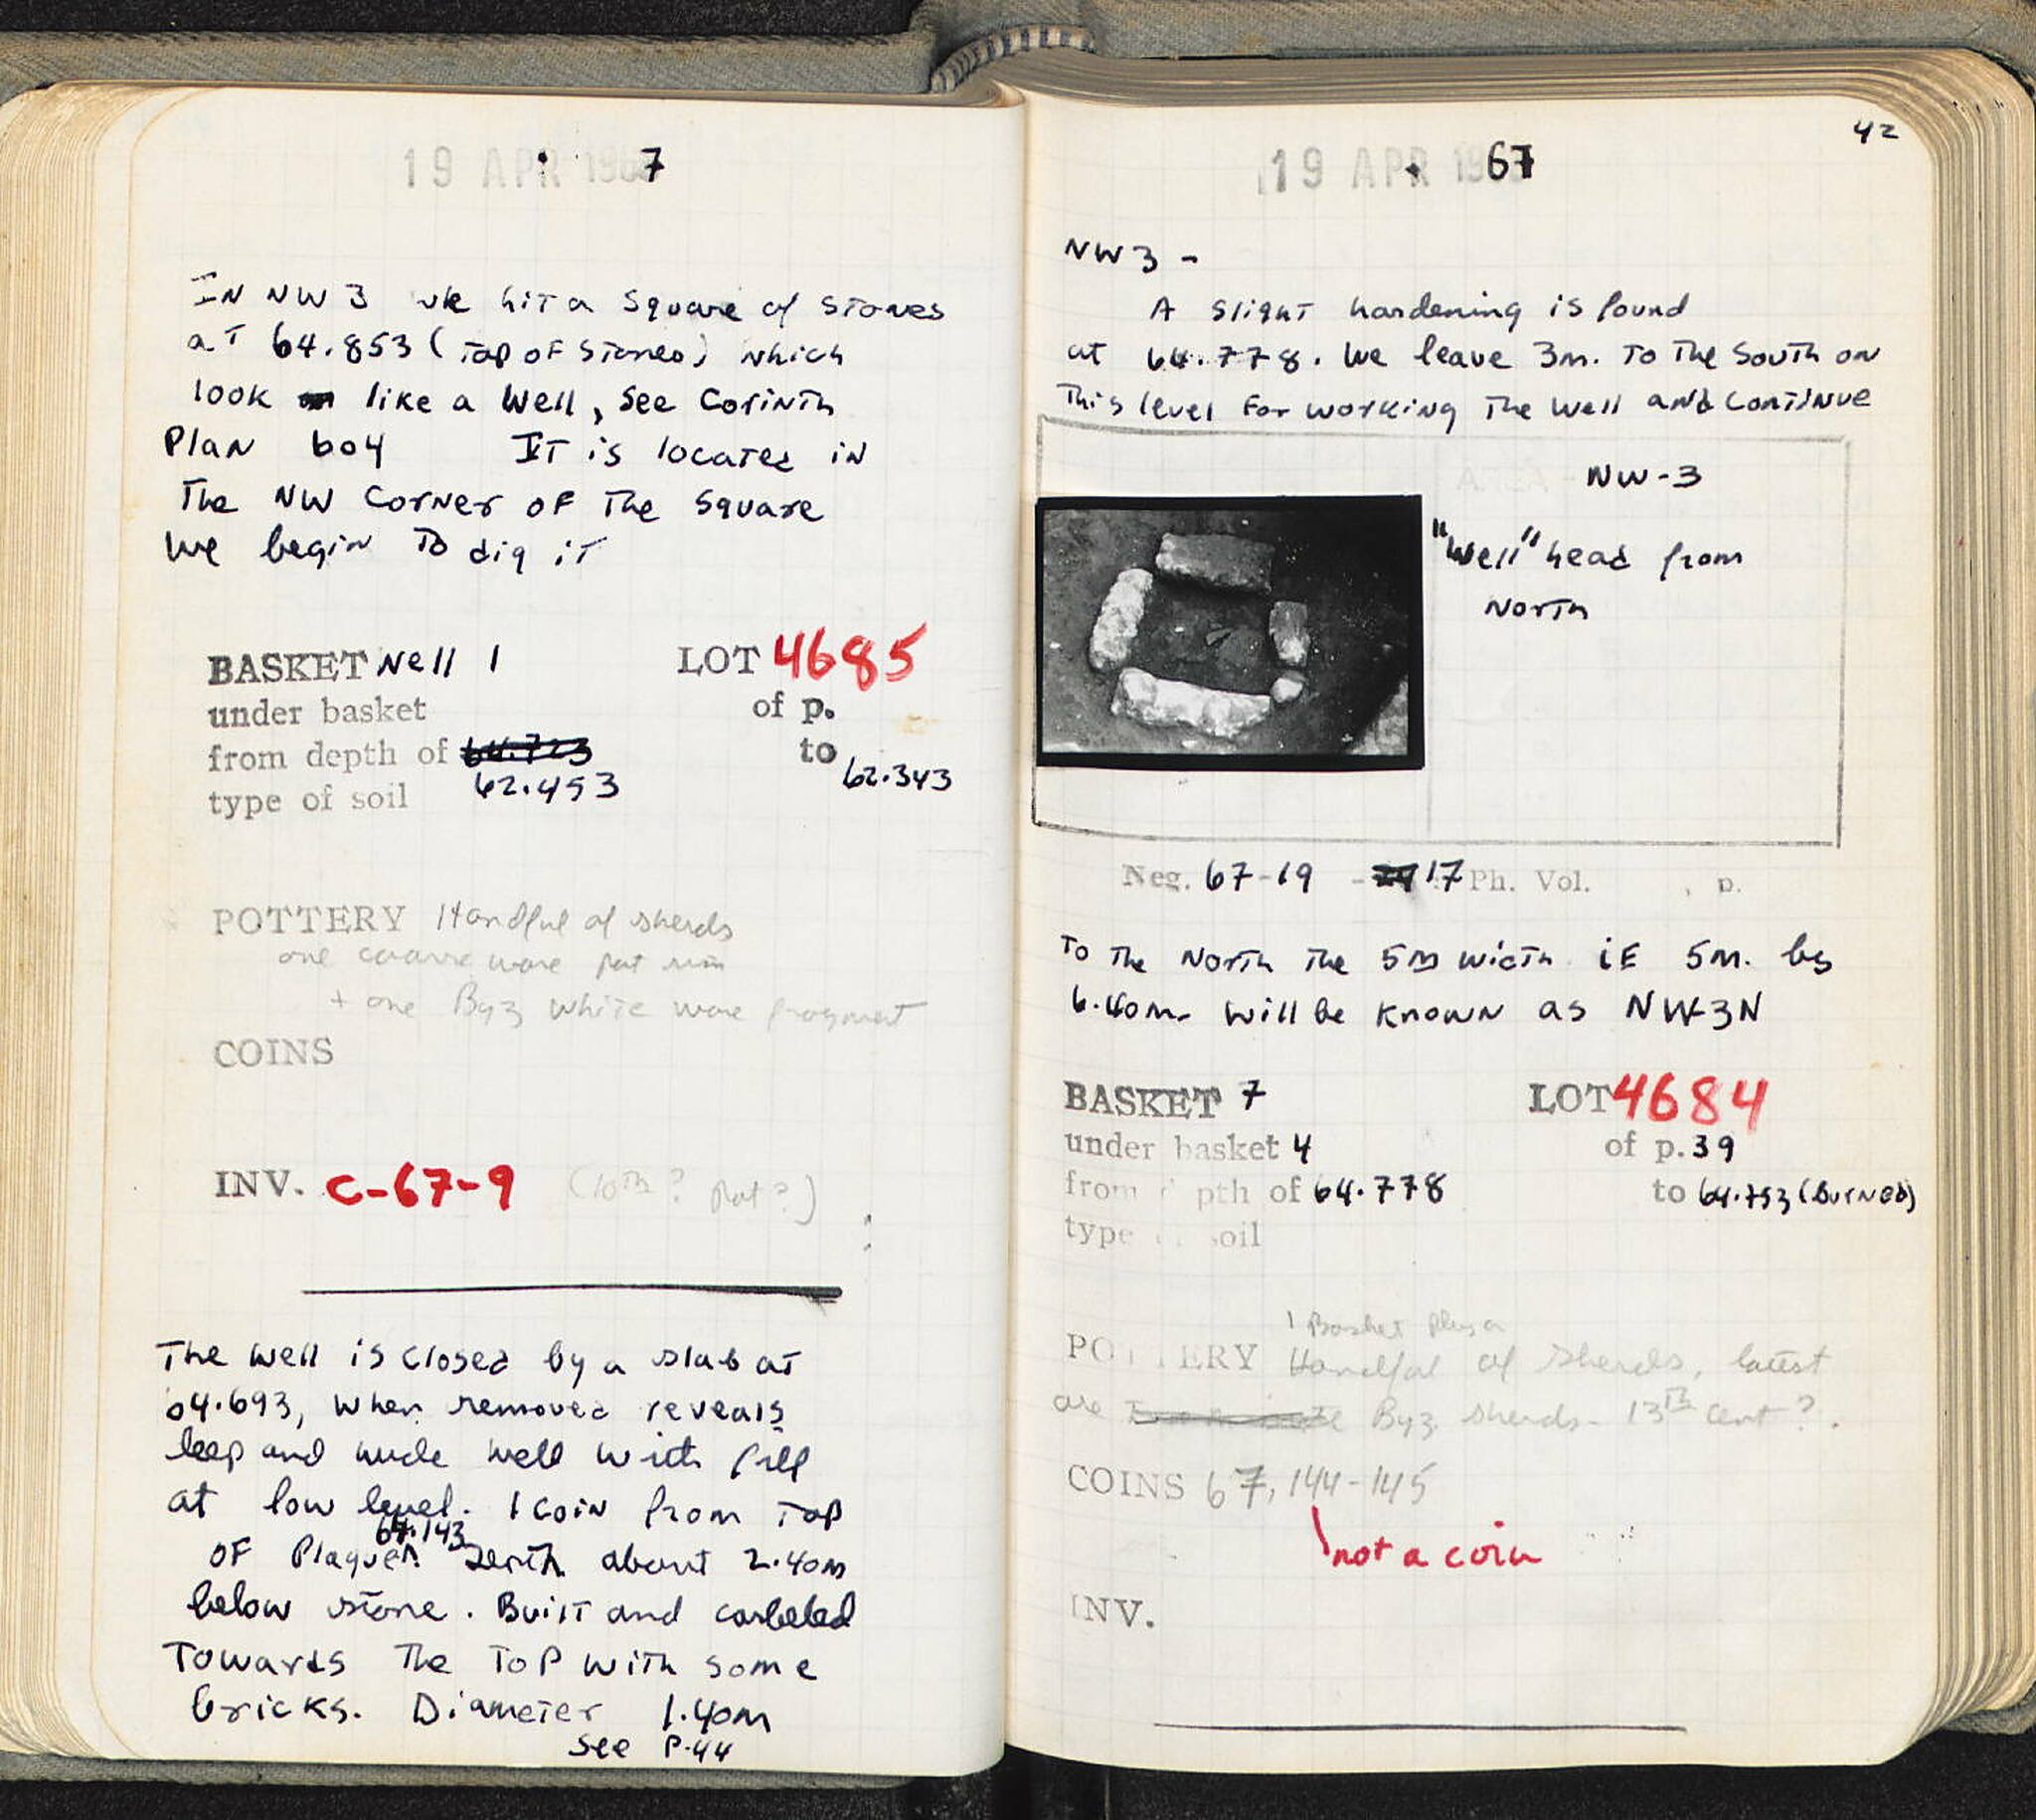 19 APR 1967
IN NW 3 we hit a square of stones
at 64.853 (top of stones) which
look like a well, see Corinth
Plan 604 It is located in
The NW corner of the square
We begin to dig it
BASKET Well 1 LOT 4685
under basket of p.
from depth of 62.453 to 62.343
type of soil
POTTERY Handful of sherds
one coarse ware pot rim
+ one Byz white ware fragment
COINS
INV. C-67-9 (10th? pot?)
The well is closed by a slab at
64.693, when removed reveals
deep and wide well with fill
at low level. 1 coin from top
of Plaque 67.143 Depth about 2.40m
below stone. Built and corbeled
Towards the top with some
bricks. Diameter 1.40m
see P.44
42
19 APR 67
NW 3 -
A slight hardening is found
at 64.778. We leave 3m. to the South on
this level for working the well and continue
NW-3
"Well" head from
North
Neg. 67-19 - 17 Ph. Vol. , p.
To the North the 5m width iE 5m. by
6.40m. will be known as NW3N
BASKET 7 LOT 4684
under basket 4 of p. 39
from depth of 64.778 to 64.753 (Burned)
type of soil
1 Basket plus a
POTTERY Handful of sherds, latest
are Byz. sherds - 13th cent?.
COINS 67, 144-145
not a coin
INV.